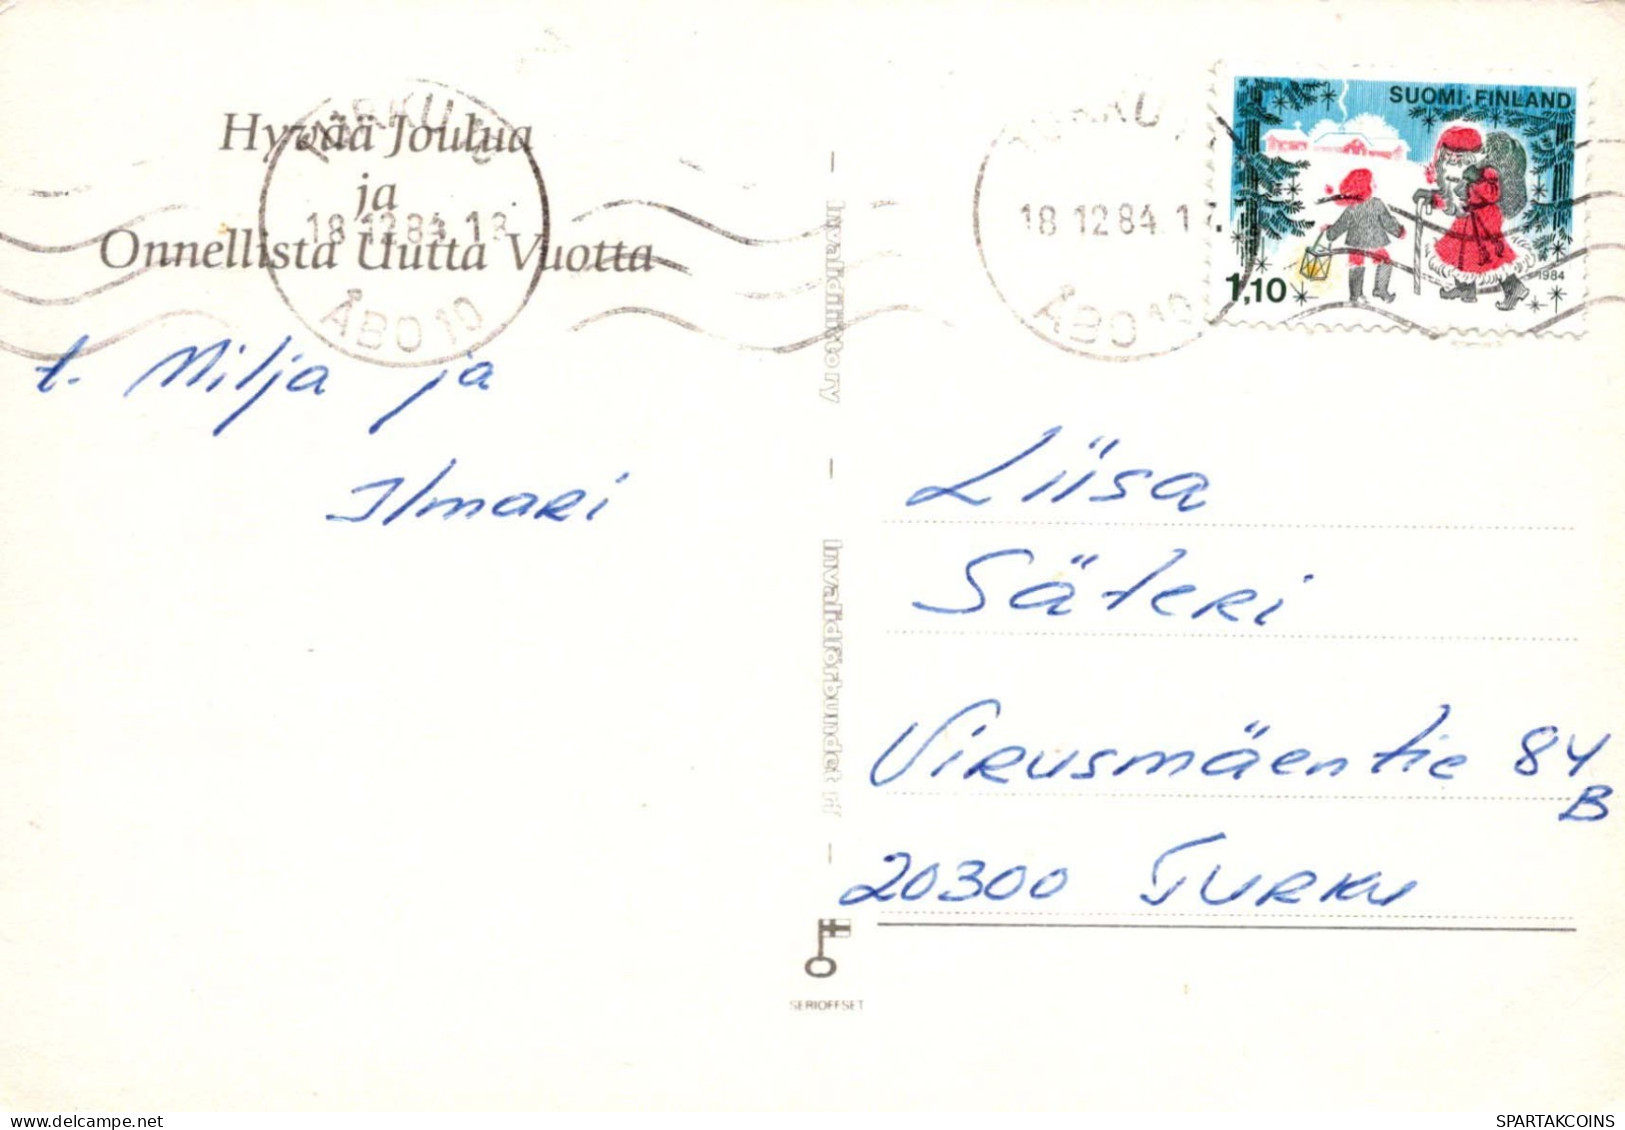 Hyvää Joulua
ja
Onnellista Uutta Vuotta
TURKU 10
18.12.84.18
ÅBO 10
t. Milja ja
Ilmari
Invalidiliitto ry
Invalidförbundet rf
SERIOFFSET
TURKU
18.12.84.17
ÅBO 10
SUOMI·FINLAND
1984
1,10
Liisa
Säteri
Virusmäentie 84
B
20300 Turku
SPARTAKCOINS
delcampe.net